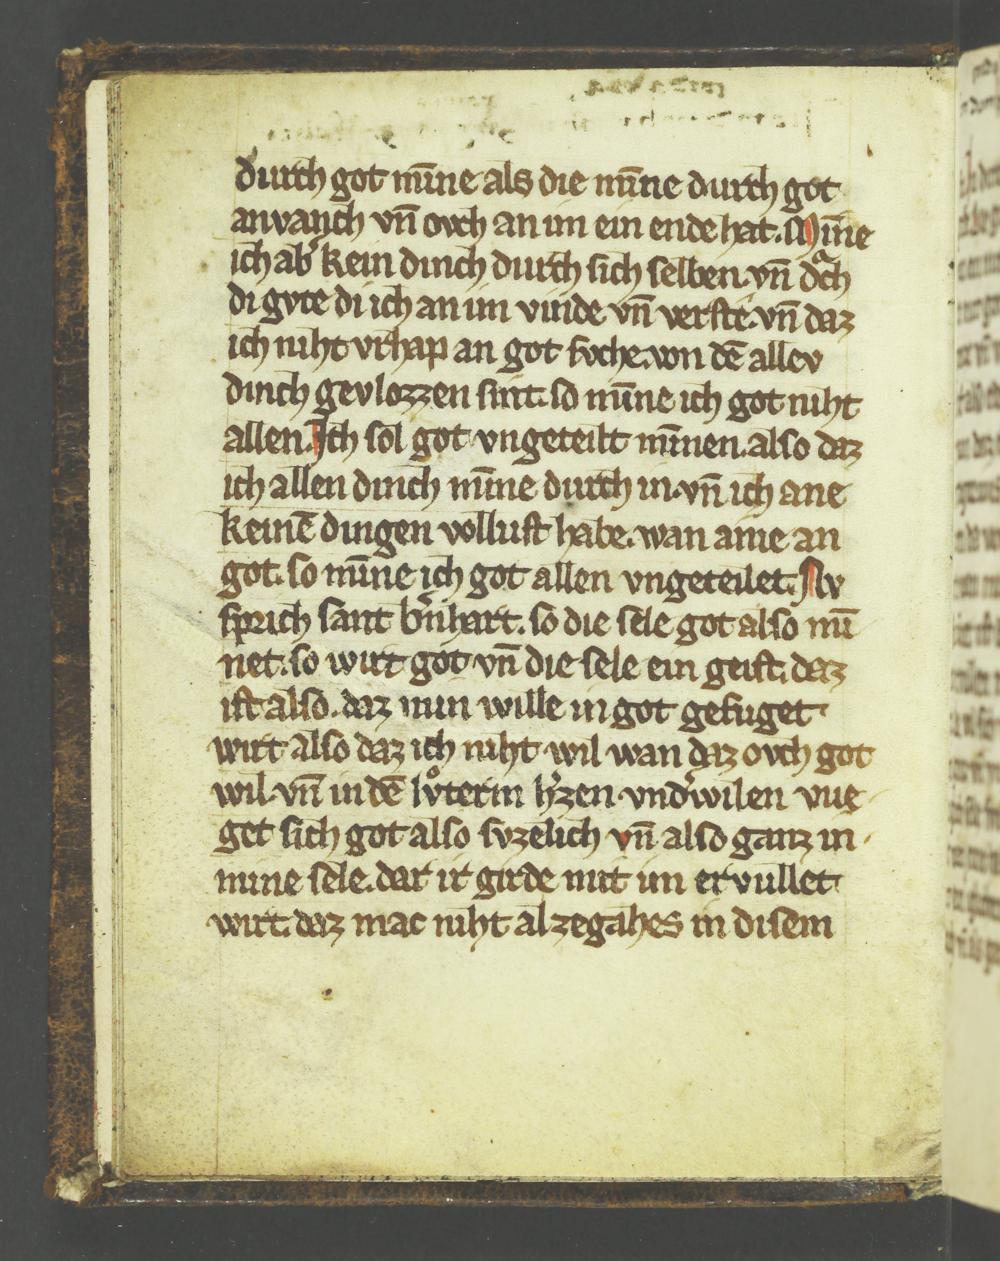 durch got mīne als die mīne durch got
anvanch vn̄ ovch an im ein ende hat. Mīne
ich ab͛ kein dinch durch sich selben. vn̄ dᵛch
di gvte di ich an im vinde vn̄ verste. vn̄ daz
ich niht vrhap an got svche. von dē allev
dinch gevlozzen sint. so mīne ich got niht
allen. Ich sol got vngeteilt mīnen. also daz
ich allen dinch mīne durch in. vn̄ ich ane
keinē dingen vollust habe. wan aine an
got. so mīne ich got allen vngeteilet. Nv
sprich sant b͛nhart. so die sele got also mī
net. so wirt got vn̄ die sele ein geist. daz
ist also. daz min wille in got gefuget
wirt also daz ich niht wil wan daz ovch got
wil. vn̄ in dē lvͦterm h͛zen vnd͛wilen vue
get sich got also svzelich vn̄ also ganz in
mine sele. dar ir girde mit im ervullet
wirt. daz mac niht alzegahes in disem